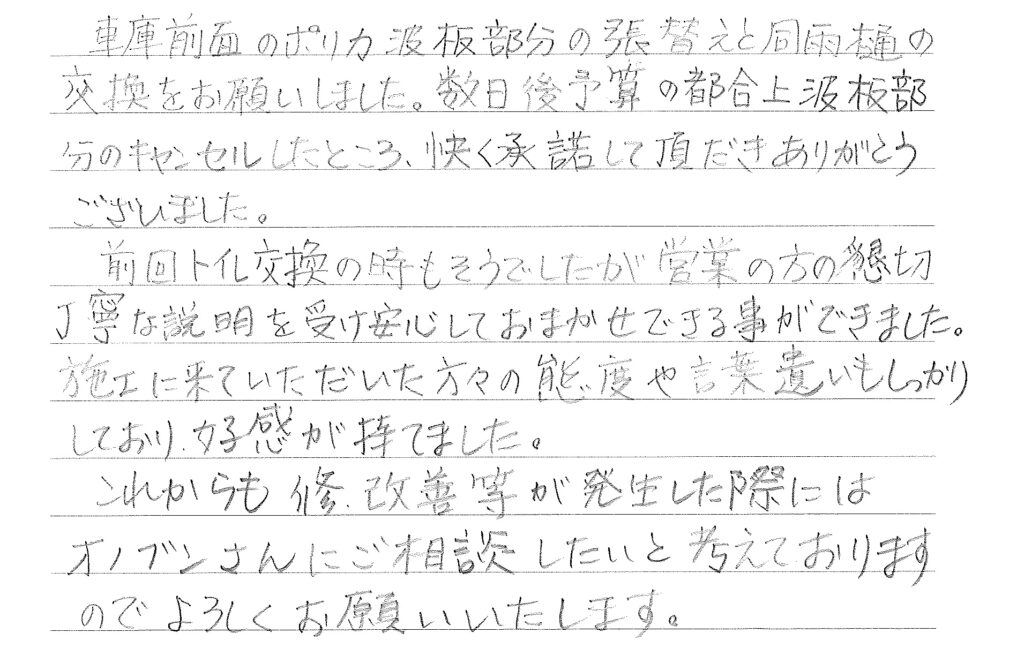 車庫前面のポリカ波板部分の張替えと同雨樋の
交換をお願いしました。数日後予算の都合上波板部
分のキャンセルしたところ、快く承諾して頂だきありがとう
ございました。
前回トイレ交換の時もそうでしたが営業の方の懇切
丁寧な説明を受け安心しておまかせできる事ができました。
施工に来ていただいた方々の態度や言葉遺いもしっかり
しており、好感が持てました。
これからも修、改善等が発生した際には
オノブンさんにご相談したいと考えております
のでよろしくお願いいたします。